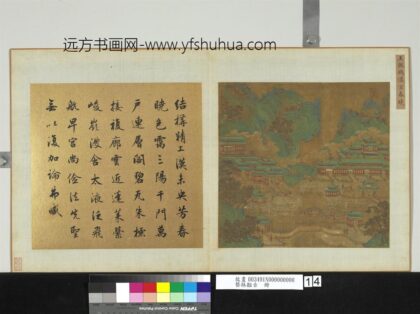 远方书画网-www.yfshuhua.com
結構精工漢未央芳春
曉色靄三陽千門萬
戶連層閣碧瓦朱
接複廊雲近蓬萊縈
峻嶺波含太液泛飛
航卑宮尚儉法先聖
無以復加論弗臧
漢宮春曉
故畫 003491N000000006
冊
14